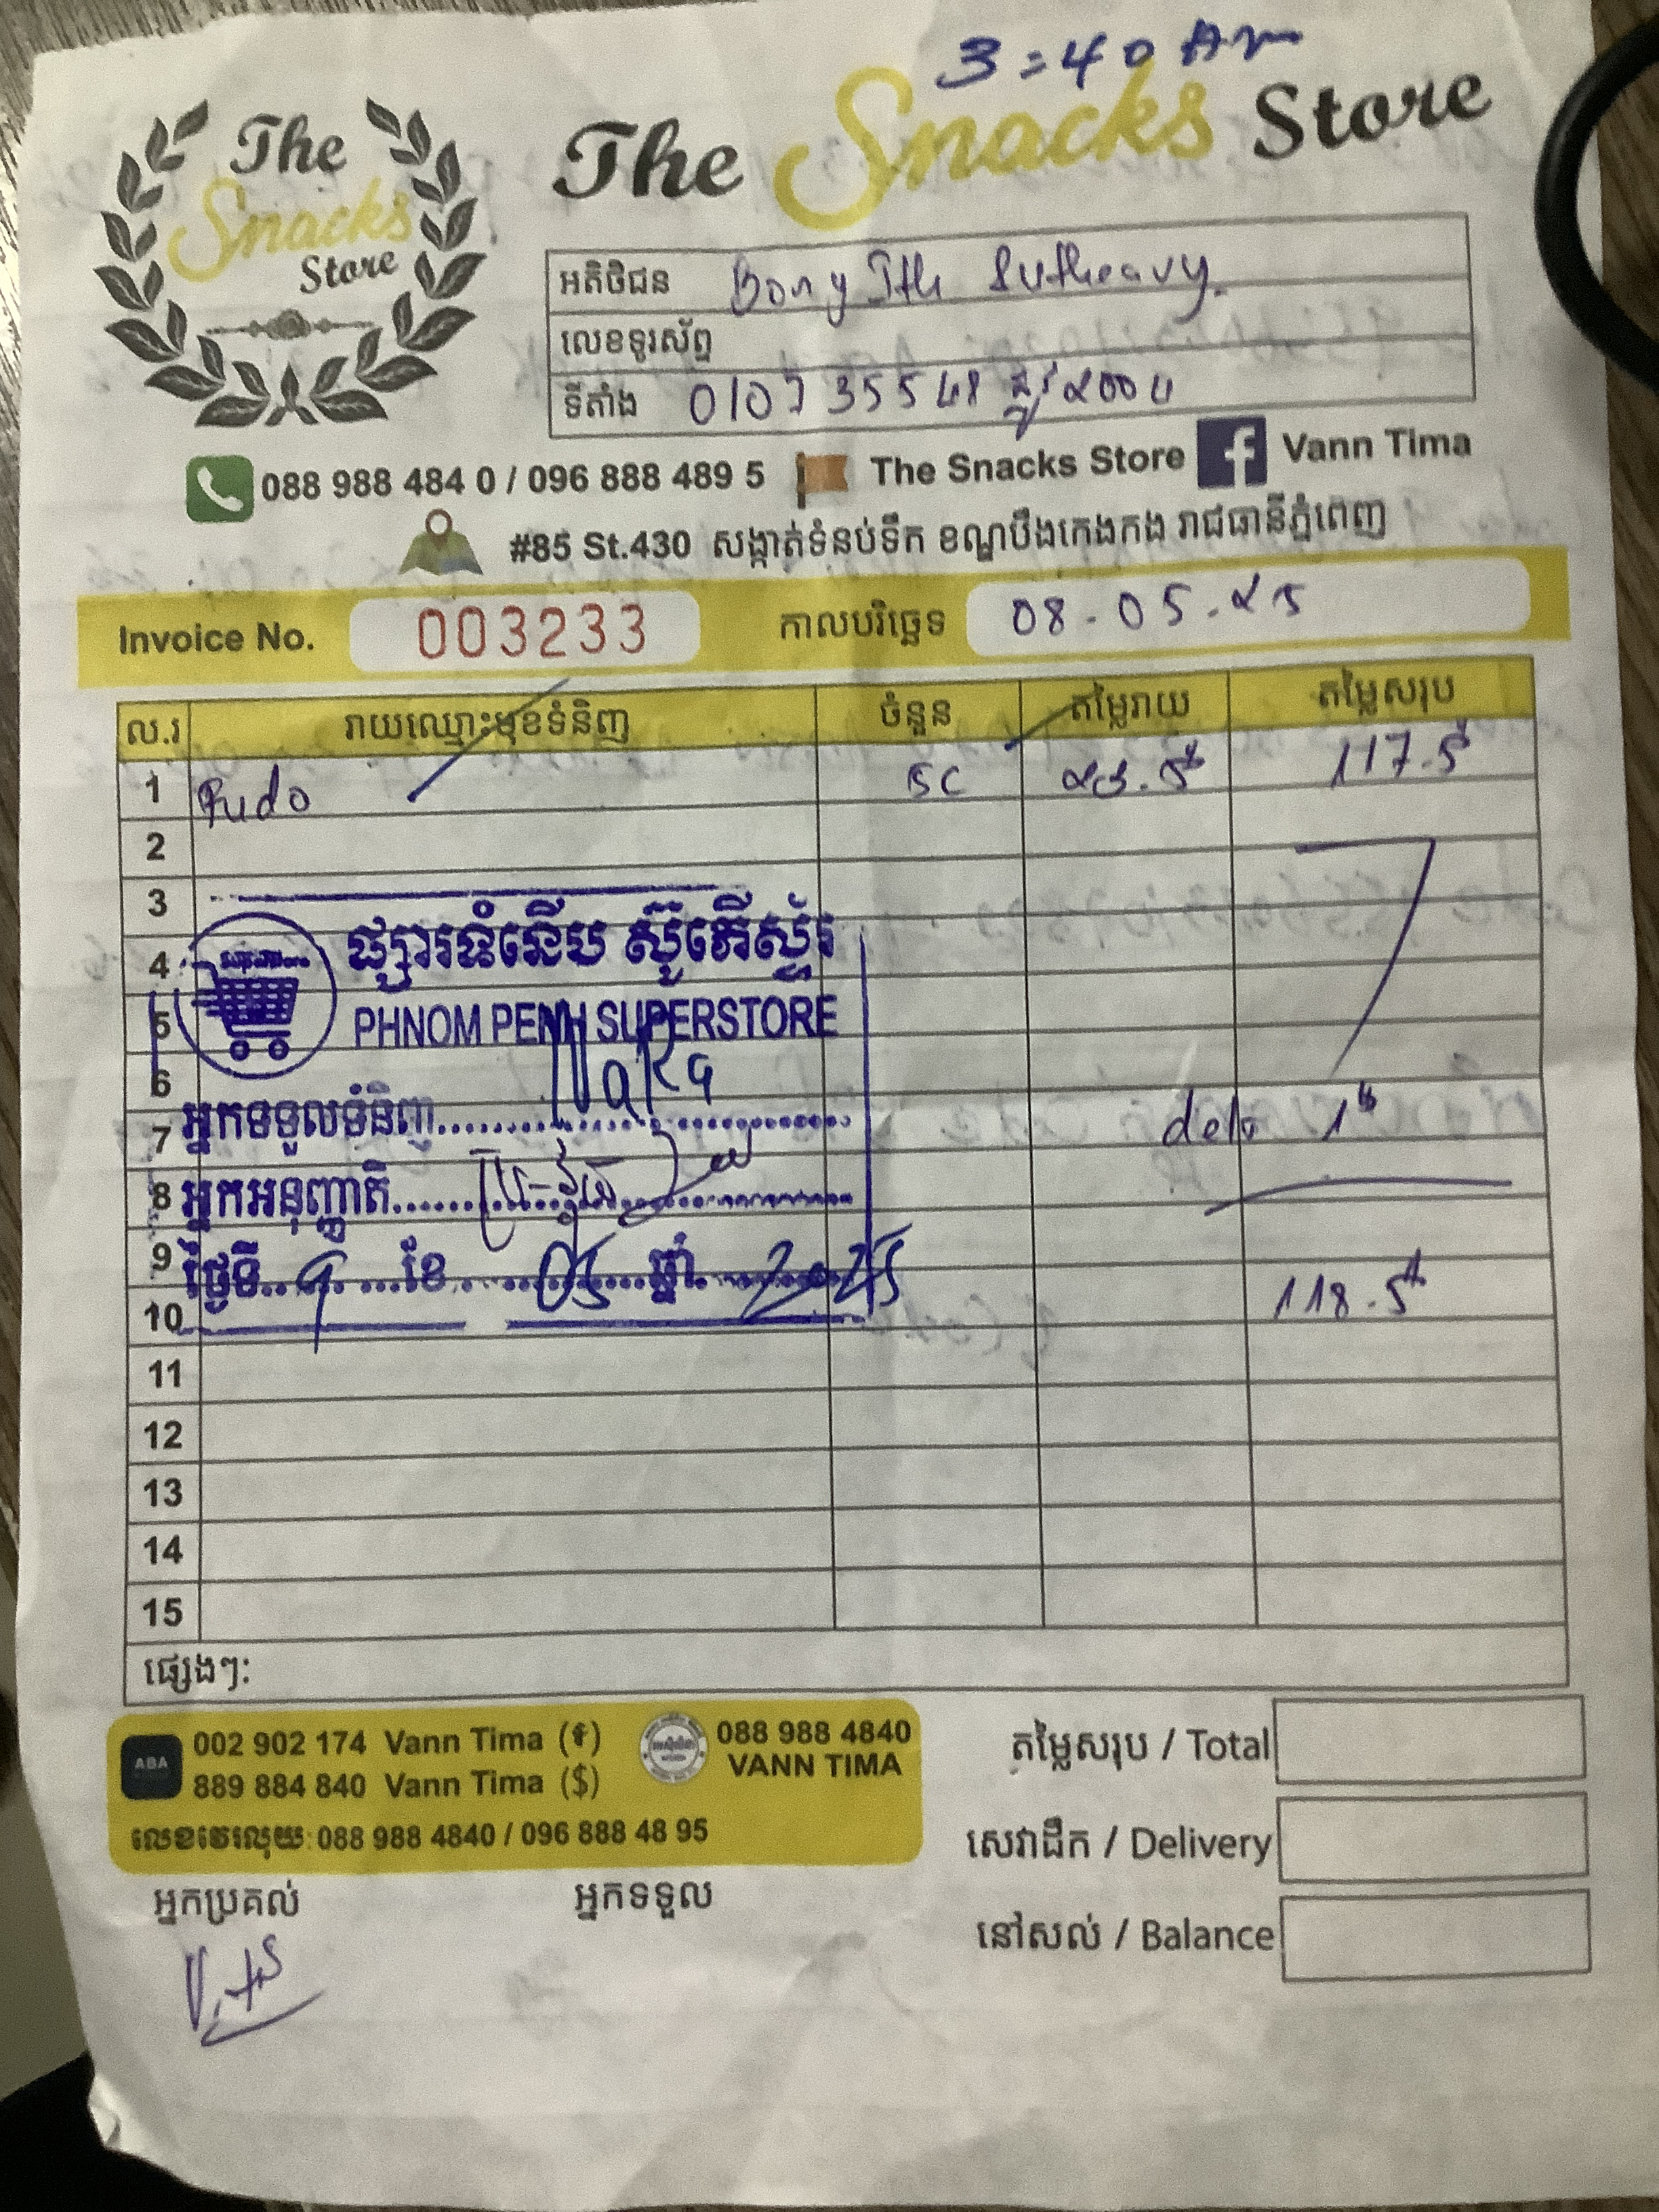 3:40 Am
The Snacks Store
The Snacks Store
អតិថិជន Bong Ith Sutheavy.
លេខទូរស័ព្ទ
ទីតាំង 010735548 ផ្លូវ 2004
088 988 484 0 / 096 888 489 5 The Snacks Store Vann Tima
#85 St.430 សង្កាត់ទំនប់ទឹក ខណ្ឌបឹងកេងកង រាជធានីភ្នំពេញ
Invoice No. 003233 កាលបរិច្ឆេទ 08-05-25
ល.រ រាយឈ្មោះមុខទំនិញ ចំនួន តម្លៃរាយ តម្លៃសរុប
1 Pudo 5C 23.5$ 117.5$
2
3
4 ផ្សារទំនើប ស៊ូភើស្ទ័រ
5 PHNOM PENH SUPERSTORE
6
7 អ្នកទទួលទំនិញ Naka deli 1$
8 អ្នកអនុញ្ញាតិ
9 ថ្ងៃទី 9 ខែ 05 ឆ្នាំ 2025
10 118.5$
11
12
13
14
15
ផ្សេងៗ:
ABA 002 902 174 Vann Tima (៛) 088 988 4840
889 884 840 Vann Tima ($) VANN TIMA
លេខវេរលុយ: 088 988 4840 / 096 888 48 95
តម្លៃសរុប / Total
សេវាដឹក / Delivery
នៅសល់ / Balance
អ្នកប្រគល់ អ្នកទទួល